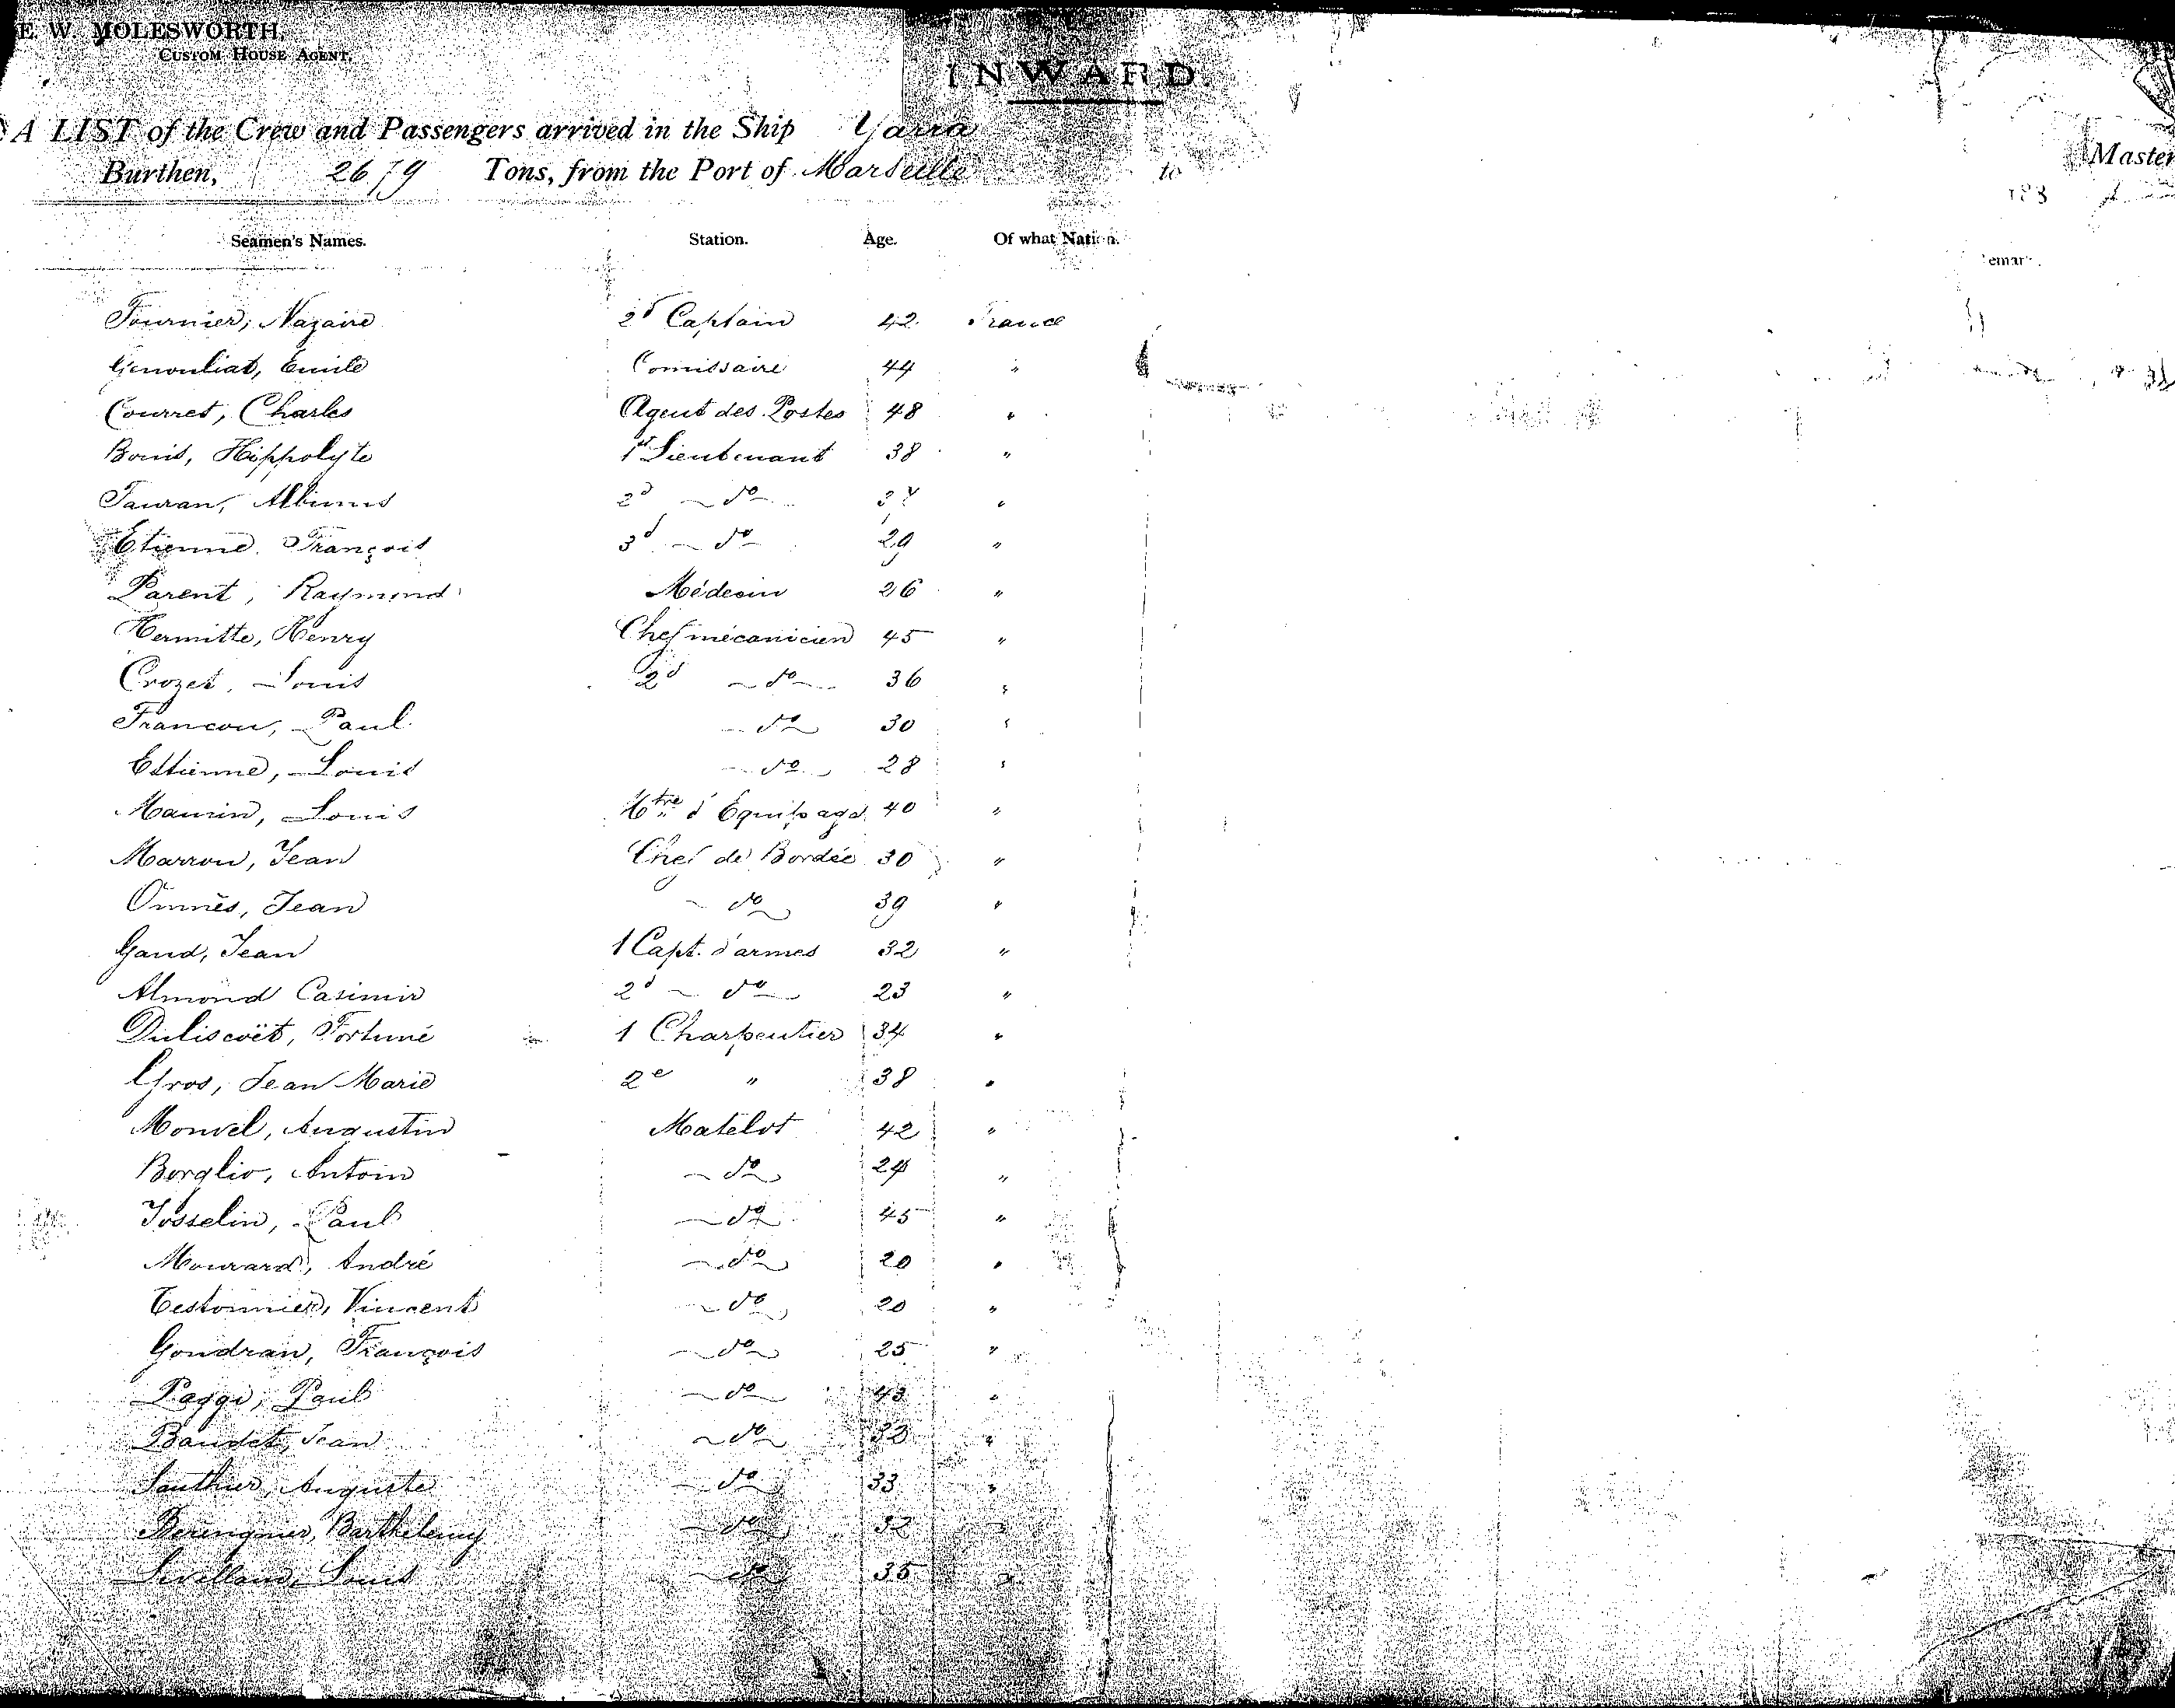 E. W. MOLESWORTH,
CUSTOM HOUSE AGENT.
INWARD.
A LIST of the Crew and Passengers arrived in the Ship Yarra Master
Burthen, 2679 Tons, from the Port of Marseille to 188
Seamen's Names. Station. Age. Of what Nation.
Fournier, Nazaire 2d Captain 42 France
Genouliat, Emile Comissaire 44 "
Courret, Charles Agent des Postes 48 "
Bouis, Hippolyte 1st Lieutenant 38 "
Tauran, 2d do "
Etienne, François 3d do 29 "
Parent, Raymond Médecin 26 "
Hermitte, Henry Chef mécanicien 45 "
Crozet, Louis 2d do 36 "
Francou, Paul do 30 "
Estienne, Louis do 28 "
Maurin, Louis Mtre d'Équipage 40 "
Marrou, Jean Chef de Bordée 30 "
Omnès, Jean do 39 "
Gaud, Jean 1 Capt. d'armes 32 "
Almond Casimir 2d do 23 "
Duliscoët, Fortuné 1 Charpentier 34 "
Gros, Jean Marie 2e " 38 "
Monvel, Augustin Matelot 42 "
Borglio, Antoin do 24 "
Josselin, Paul do 45 "
Mourard, André do 20 "
Testonnier, Vincent do 20 "
Gondran, François do 25 "
Paggi, Paul do 43 "
Baudet, Jean do 33 "
Gauthier, Auguste do 33 "
Berenguier, Barthélemy do 32 "
Louis do 35 "